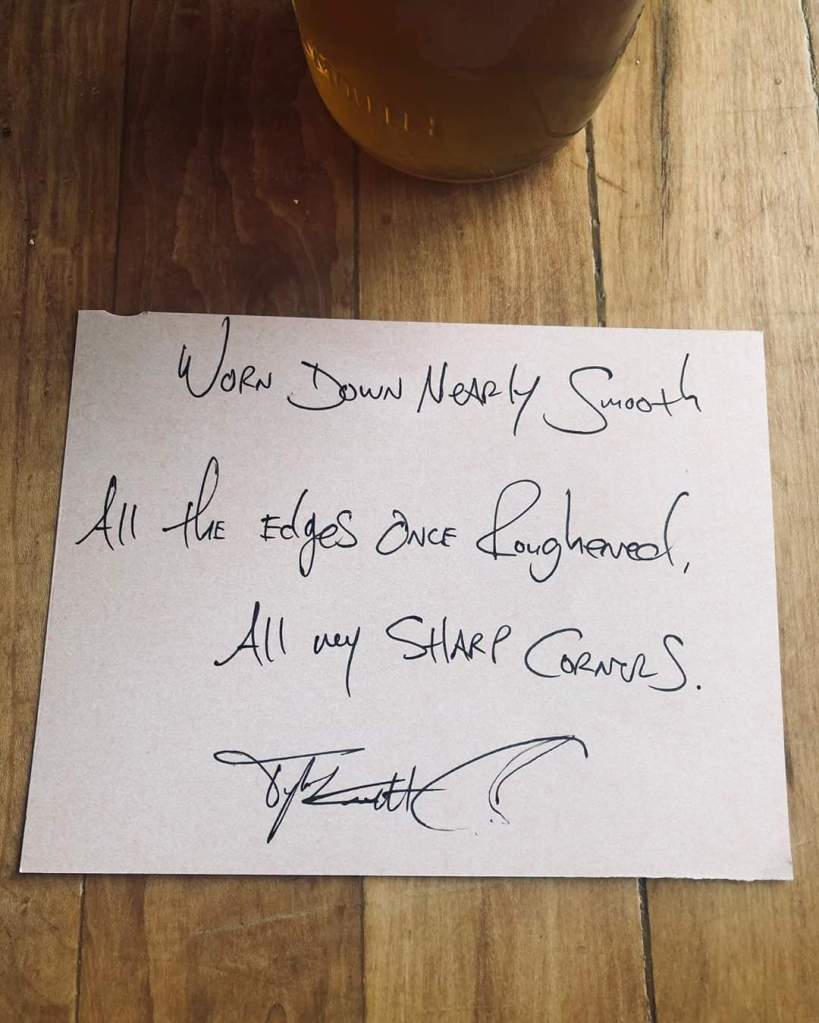 Worn Down Nearly Smooth
All the Edges Once Roughened,
All my Sharp Corners.